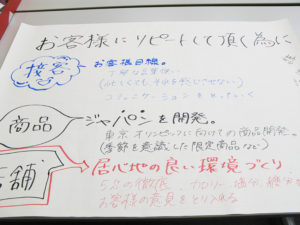 お客様にリピートして頂く為に
接客
お客様目線。
丁寧な言葉使い
(忙しくてもそれを感じさせない)
コミュニケーションをとっていく
商品
ジャパンを開発。
東京オリンピックに向けての商品開発。
(季節を意識した限定商品など)
店舗
居心地の良い環境づくり
5Sの徹底、カロリー、塩分、糖分
お客様の意見をとり入れる